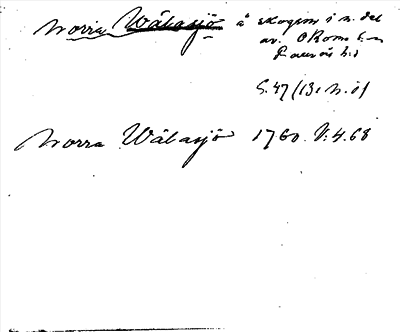 Norra Wålasjö å skogen i n. del
av. O Roma
S. 47 (13, N. ö)
Norra Wålasjö 1760. V. 4. 68